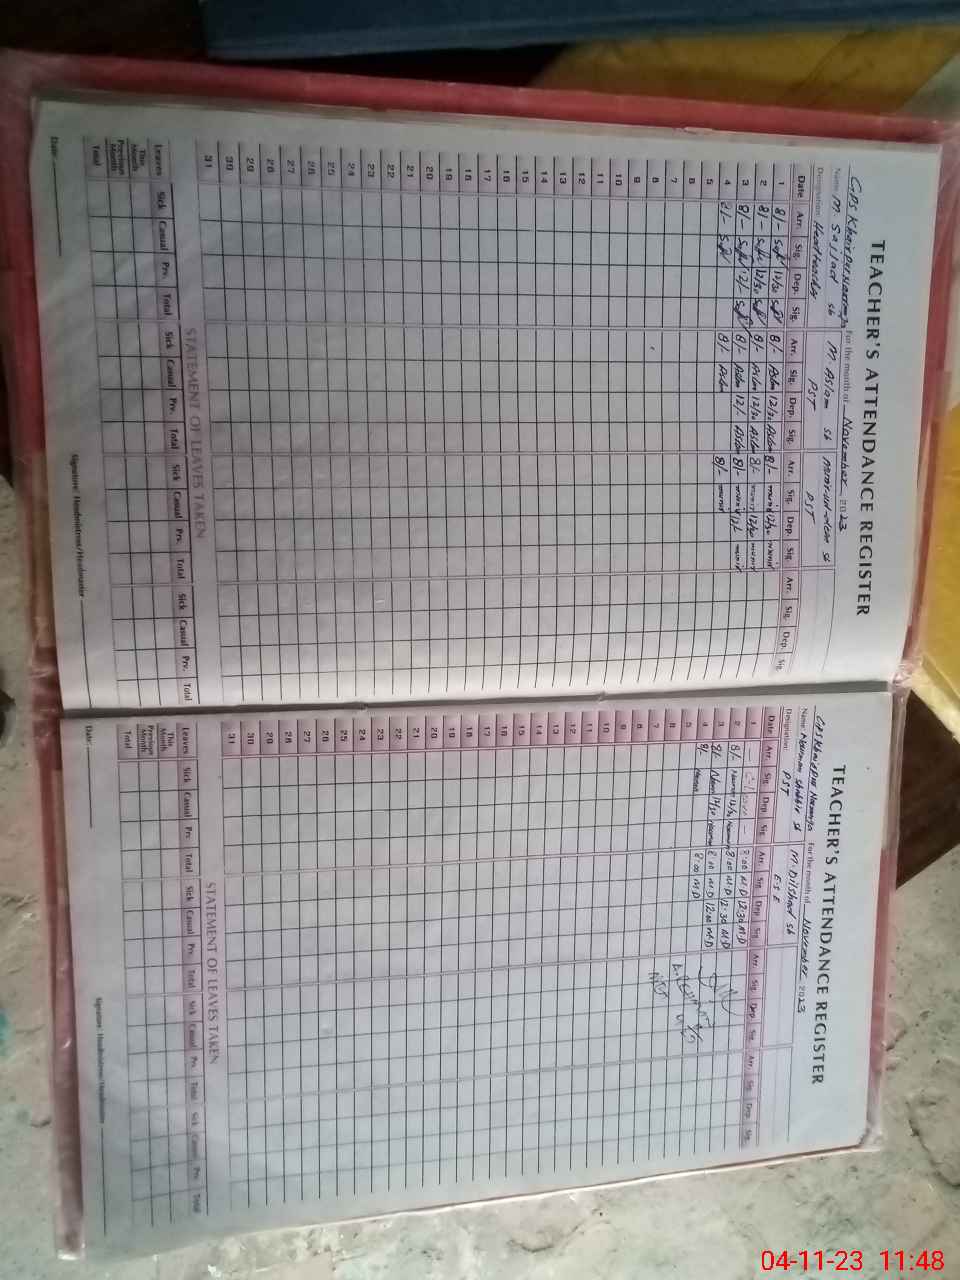 TEACHER'S ATTENDANCE REGISTER
GPS Khairpur For the month of November 2023
Name: M Sajjad sb M. Aslam sb sb
Designation: Headteacher PST PST
Date Arr. Sig. Dep. Sig. Arr. Sig. Dep. Sig. Arr. Sig. Dep. Sig. Arr. Sig. Dep. Sig.
1 8/- 12/30 8/- Aslam 12/30 Aslam 8/- munir 12/30 munir
2 8/- 12/30 8/- Aslam 12/30 Aslam 8/- munir 12/30 munir
3 8/- 12/- 8/- Aslam 12/- Aslam 8/- munir 12/- munir
4 8/- 8/- Aslam 8/- munir
5
6
7
8
9
10
11
12
13
14
15
16
17
18
19
20
21
22
23
24
25
26
27
28
29
30
31
STATEMENT OF LEAVES TAKEN
Leaves Sick Casual Prv. Total Sick Casual Prv. Total Sick Casual Prv. Total Sick Casual Prv. Total
This Month
Previous Month
Total
Date: Signature: Headmistress/Headmaster
TEACHER'S ATTENDANCE REGISTER
GPS Khairpur For the month of November 2023
Name: shabbir sb M. Dilshad sb
Designation: PST ESE
Date Arr. Sig. Dep. Sig. Arr. Sig. Dep. Sig. Arr. Sig. Dep. Sig. Arr. Sig. Dep. Sig.
1 — C-Leave — 8:00 M.D 12:30 M.D
2 8/- 12/30 8:00 M.D 12:30 M.D
3 8/- 8:00 M.D 12:00 M.D
4 8/- 8:00 M.D
5
6
7
8
9
10
11
12
13
14
15
16
17
18
19
20
21
22
23
24
25
26
27
28
29
30
31
STATEMENT OF LEAVES TAKEN
Leaves Sick Casual Prv. Total Sick Casual Prv. Total Sick Casual Prv. Total Sick Casual Prv. Total
This Month
Previous Month
Total
Date: Signature: Headmistress/Headmaster
04-11-23 11:48